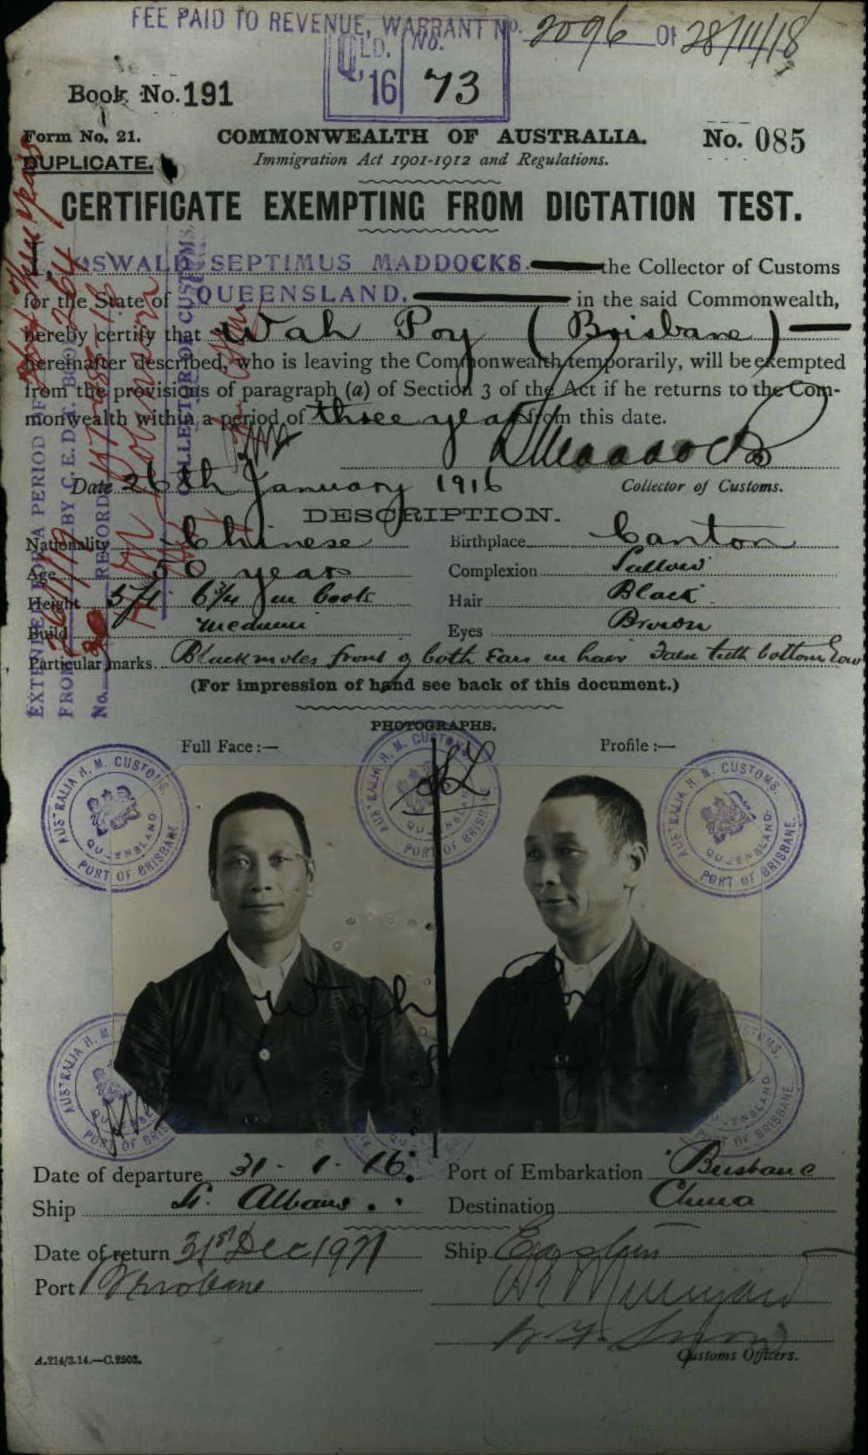 FEE PAID TO REVENUE, WARRANT No. 2096 Of 28/11/18
QLD. No.
'16 73
Book No. 191
Form No. 21.
COMMONWEALTH OF AUSTRALIA.
No. 085
DUPLICATE.
Immigration Act 1901-1912 and Regulations.
CERTIFICATE EXEMPTING FROM DICTATION TEST.
I, OSWALD SEPTIMUS MADDOCKS the Collector of Customs
for the State of QUEENSLAND. in the said Commonwealth,
hereby certify that Wah Poy (Brisbane)
hereinafter described, who is leaving the Commonwealth temporarily, will be exempted
from the provisions of paragraph (a) of Section 3 of the Act if he returns to the Com-
monwealth within a period of three years from this date.
Date 26th January 1916
Collector of Customs.
DESCRIPTION.
Nationality Chinese
Birthplace Canton
Age 50 years
Complexion Sallow
Height 5ft 6¾ in boots
Hair Black
Build medium
Eyes Brown
Particular marks. Black moles front of both Ears in hair False teeth bottom row
(For impression of hand see back of this document.)
EXTENDED FOR A PERIOD OF
FROM BY C.E.D.T. BOOK
No. RECORD
COLLECTOR OF CUSTOMS
PHOTOGRAPHS.
Full Face :—
Profile :—
AUSTRALIA H. M. CUSTOMS.
QUEENSLAND
PORT OF BRISBANE
AUSTRALIA H. M. CUSTOMS.
PORT OF BRISB
AUSTRALIA H. M. CUSTOMS.
QUEENSLAND
PORT OF BRISBANE.
Wah Poy
AUSTRALIA H. M.
PORT OF BRIS
Date of departure 31-1-16.
Port of Embarkation Brisbane
Ship St. Albans
Destination China
Date of return 31st Dec 1921
Ship Eastern
Port Brisbane
Customs Officers.
A.214/3.14.—C.2503.